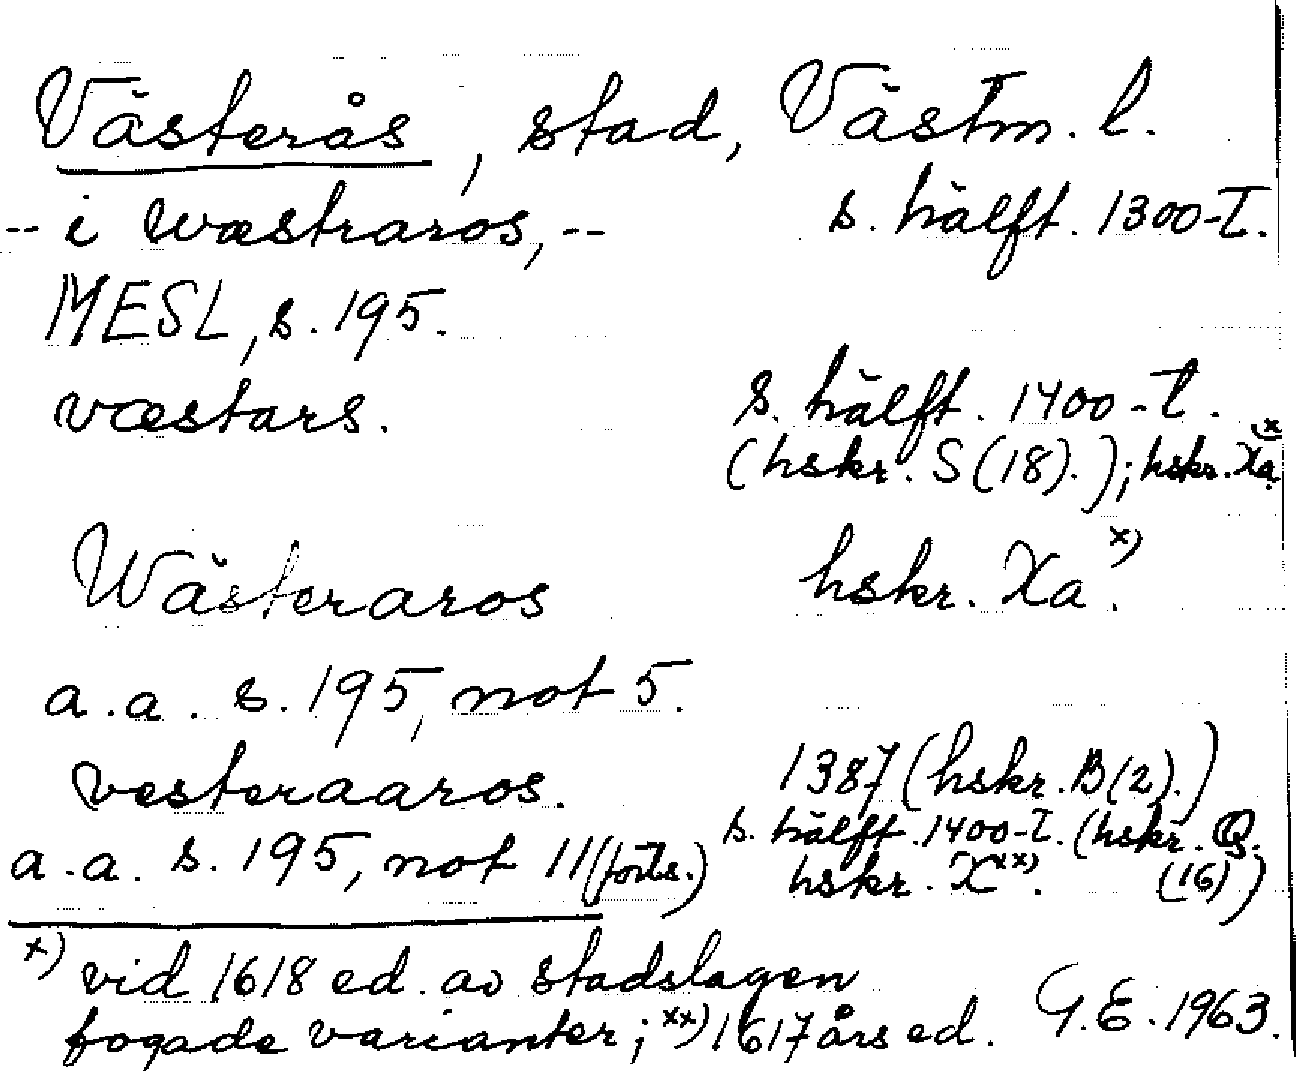 Västerås, stad, Västm. l.
-- i wæstraros, -- s. hälft. 1300-t.
MESL, s. 195.
væstars. s. hälft. 1400-t.
(hskr. S (18).); hskr. Xa x)
Wästeraros hskr. Xa x).
a.a. s. 195, not 5.
vesteraaros. 1387 (hskr. B (2).)
s. hälft. 1400-t. (hskr. Q.
a.a. s. 195, not 11 (forts.) hskr. X xx). (16))
x) vid 1618 ed. av stadslagen
fogade varianter; xx) 1617 års ed. G.E. 1963.